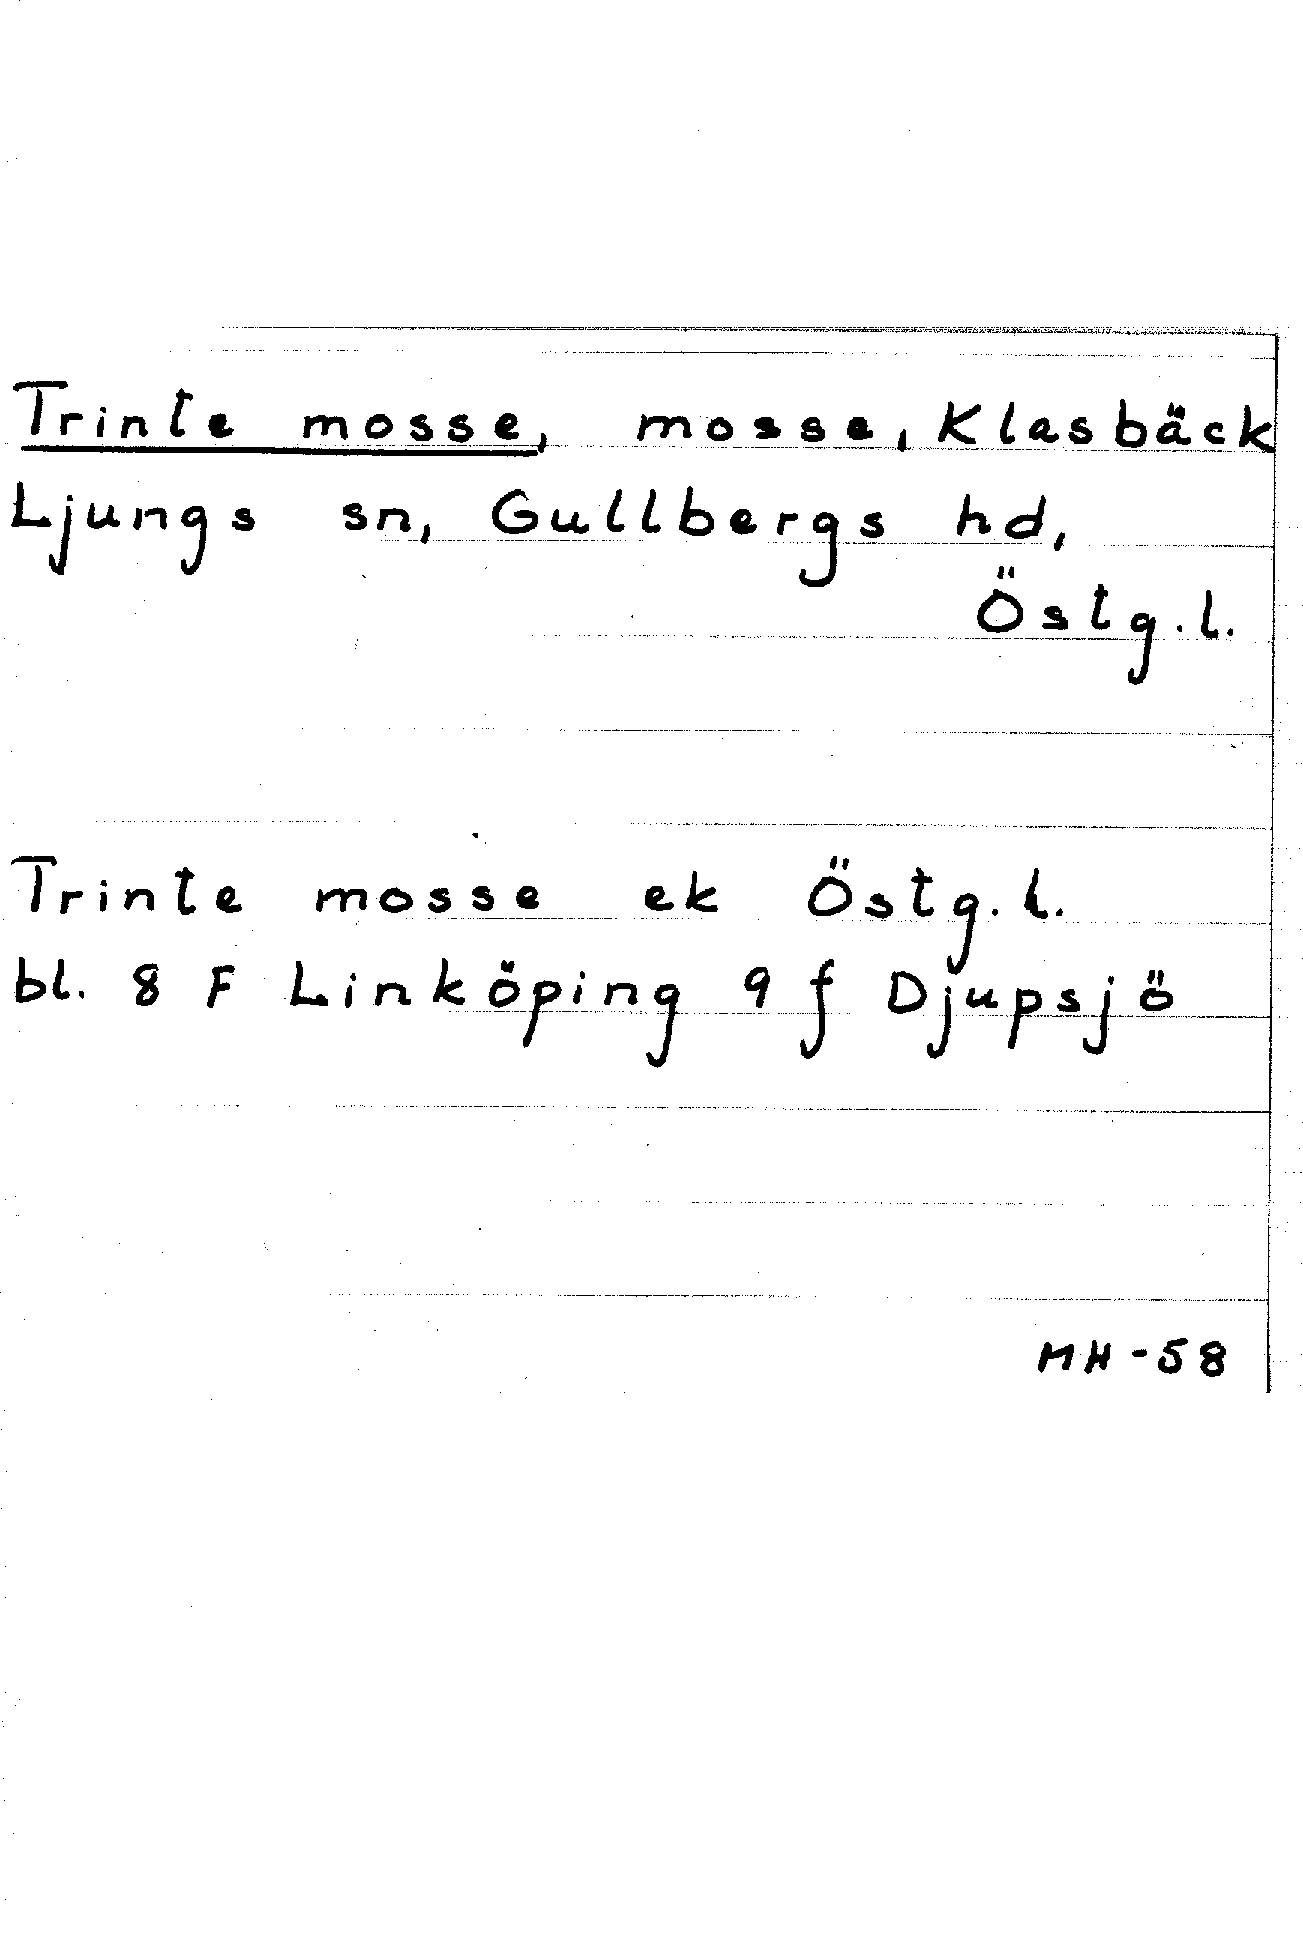 Trinte mosse, mosse, Klasbäck
Ljungs sn, Gullbergs hd,
Östg.l.
Trinte mosse ek Östg.l.
bl. 8 F Linköping 9 f Djupsjö
MH-58